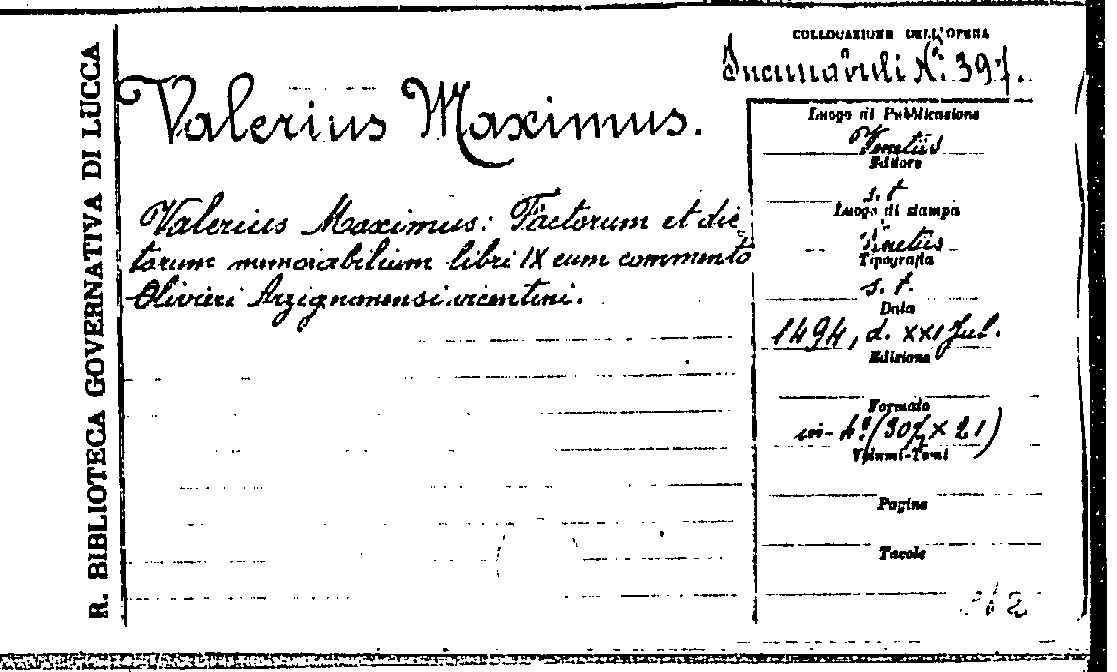 R. BIBLIOTECA GOVERNATIVA DI LUCCA
COLLOCAZIONE DELL'OPERA
Incunabuli N. 397.
Valerius Maximus.
Valerius Maximus: Factorum et dic
torum memorabilium libri IX cum commento
Olivieri Arzignanensi vicentini.
Luogo di Pubblicazione
Venetiis
Editore
s. t
Luogo di stampa
Venetiis
Tipografia
s. t.
Data
1494, d. XXI Jul.
Edizione
Formato
in-4º (30 × 21)
Volumi-Tomi
Pagine
Tavole